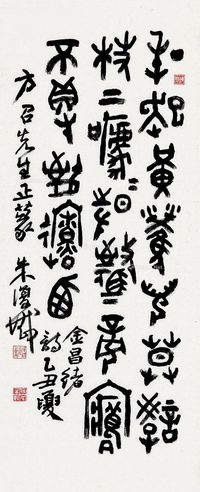 打起黃鶯兒莫教
枝上啼啼時驚妾夢
不得到遼西
金昌緒
詩乙丑夏
方召先生正
朱復戡